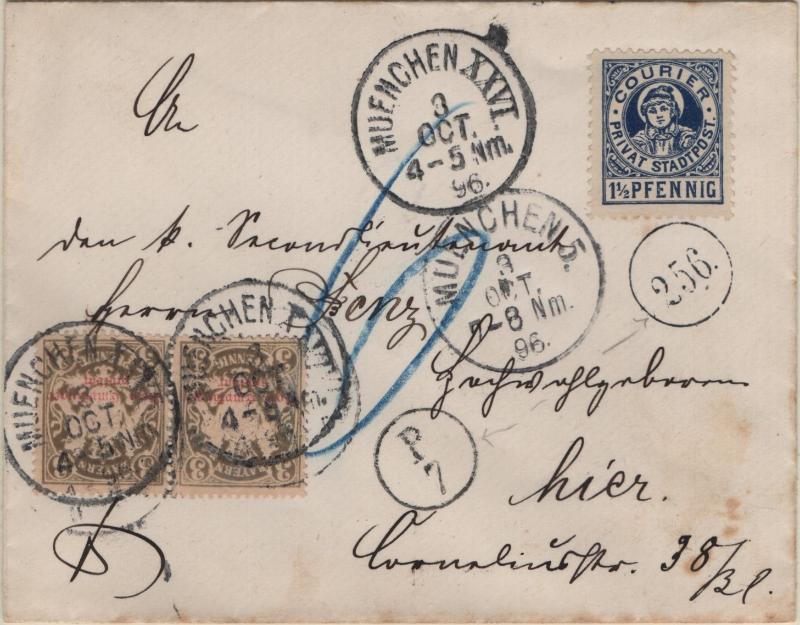 An
MUENCHEN XXVI.
3
OCT.
4-5 Nm.
96.
COURIER
PRIVAT STADTPOST.
1½ PFENNIG
den k. Secondlieutenant
MUENCHEN 5.
3
OCT.
7-8 Nm.
96.
256.
Herrn Benz
10
MUENCHEN XXVI.
3
OCT.
4-5 Nm.
MUENCHEN
OCT.
4-5 Nm.
PFENNIG
BAYERN
3
3
Hochwohlgeboren
P.
7
hier.
Corneliusstr. 38/